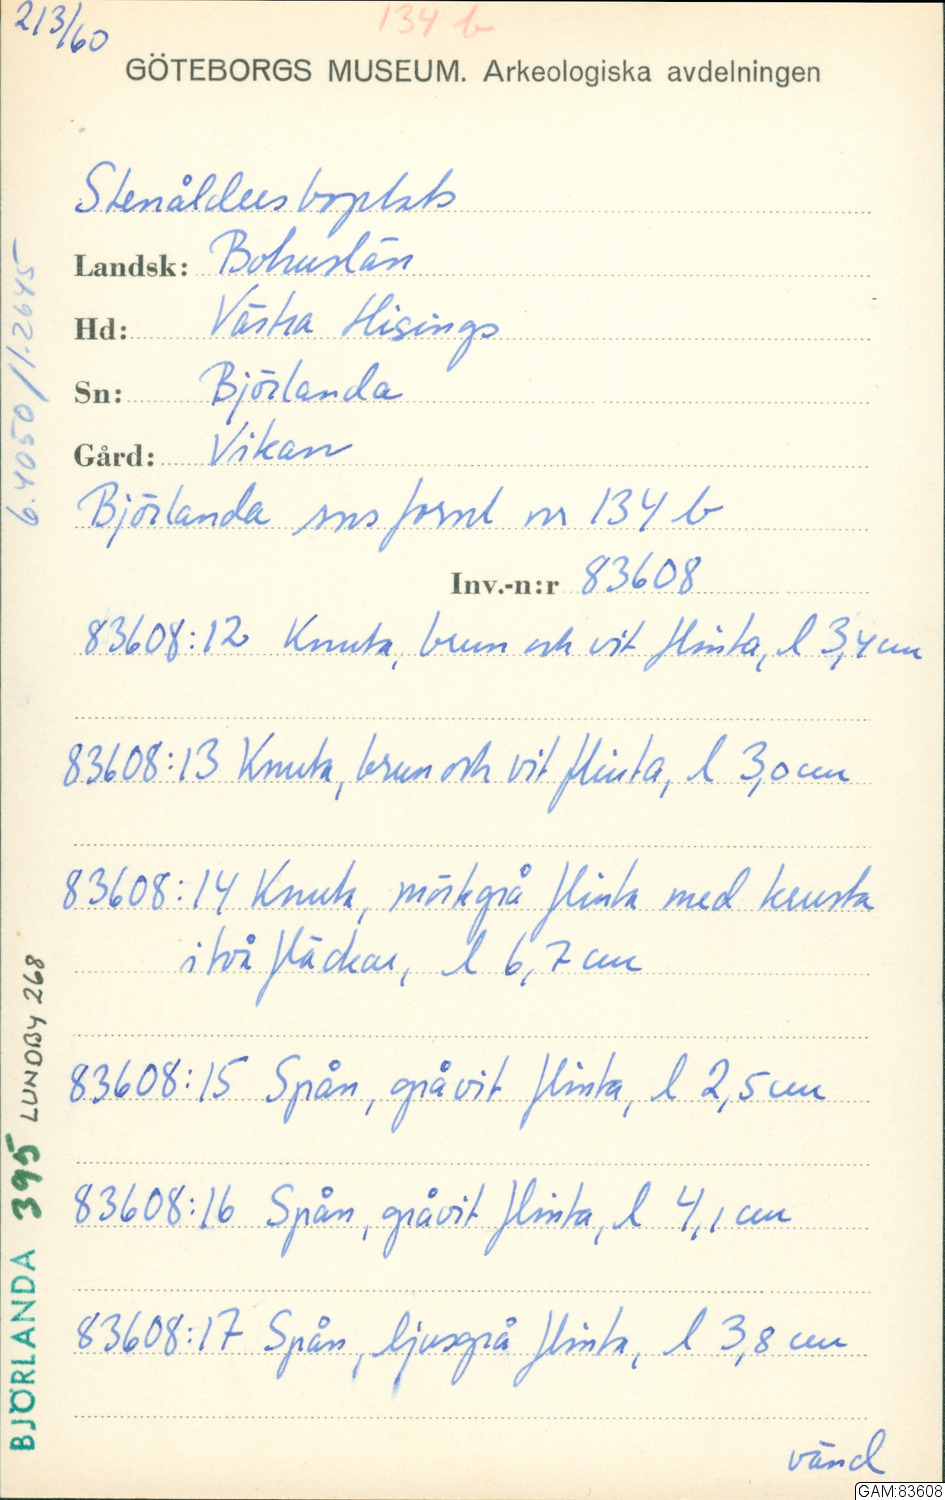 213/60
134 b
GÖTEBORGS MUSEUM. Arkeologiska avdelningen
Stenåldersboplats
Landsk: Bohuslän
Hd: Västra Hisings
Sn: Björlanda
Gård: Vikan
Björlanda sns fornl nr 134 b
Inv.-n:r 83608
83608:12 Knuta, brun och vit flinta, l 3,4 cm
83608:13 Knuta, brun och vit flinta, l 3,0 cm
83608:14 Knuta, mörkgrå flinta med krusta
i två fläckar, l 6,7 cm
83608:15 Spån, gråvit flinta, l 2,5 cm
83608:16 Spån, gråvit flinta, l 4,1 cm
83608:17 Spån, ljusgrå flinta, l 3,8 cm
vänd
6.4050/1.2645
BJÖRLANDA 395 LUNDBY 268
GAM:83608